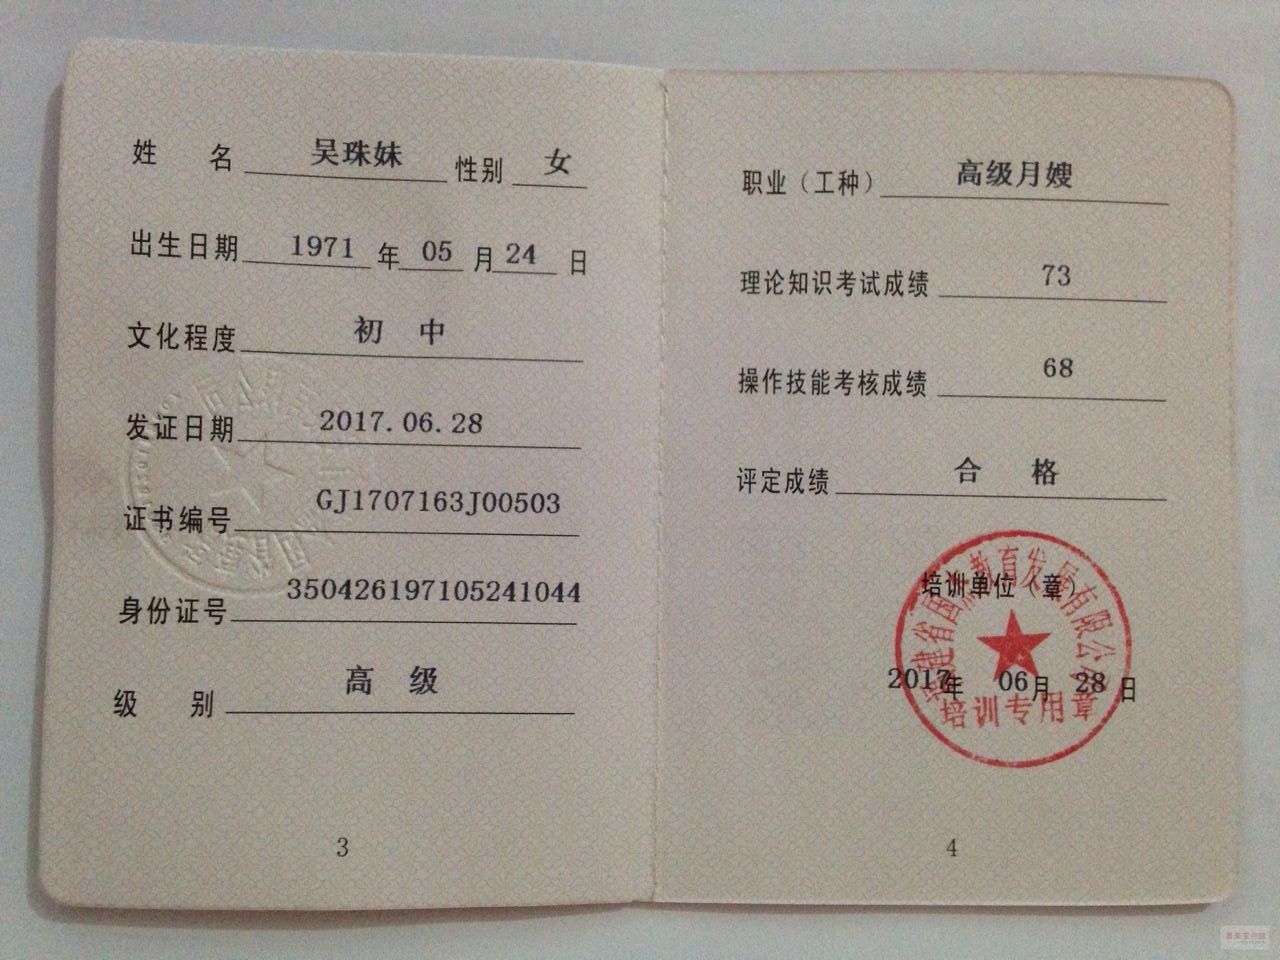 姓 名 吴珠妹 性别 女
出生日期 1971 年 05 月 24 日
文化程度 初 中
发证日期 2017.06.28
证书编号 GJ1707163J00503
身份证号 350426197105241044
级 别 高 级
3
职业（工种） 高级月嫂
理论知识考试成绩 73
操作技能考核成绩 68
评定成绩 合 格
培训单位（章）
2017年 06月 28日
教育发展有限公司
培训专用章
4